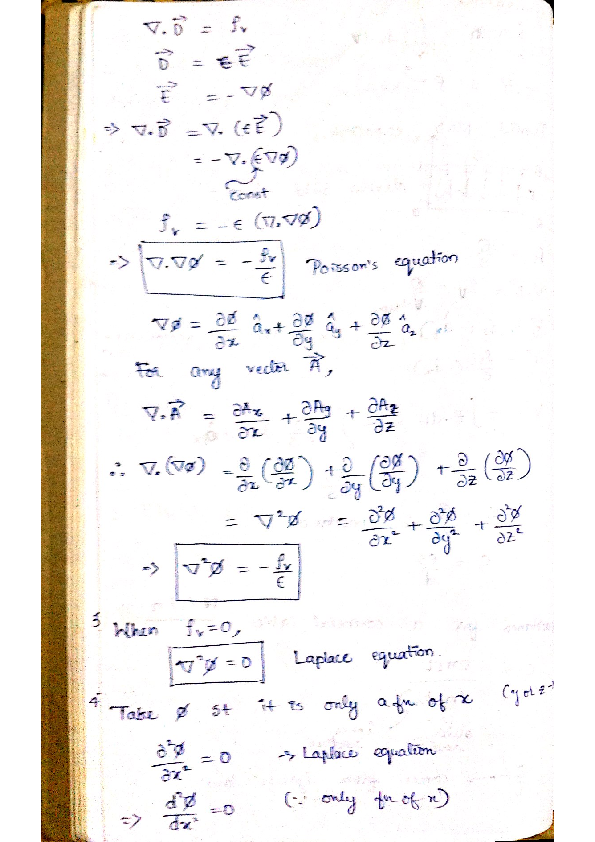 ∇.D⃗ = ρᵥ
D⃗ = εE⃗
E⃗ = -∇Ø
=> ∇.D⃗ = ∇.(εE⃗)
= -∇.(ε∇Ø)
Const
ρᵥ = -ε (∇.∇Ø)
-> ∇.∇Ø = -ρᵥ/ε Poisson's equation
∇Ø = ∂Ø/∂x âₓ + ∂Ø/∂y â_y + ∂Ø/∂z â_z
For any vector A⃗,
∇.A⃗ = ∂Aₓ/∂x + ∂A_y/∂y + ∂A_z/∂z
∴ ∇.(∇Ø) = ∂/∂x (∂Ø/∂x) + ∂/∂y (∂Ø/∂y) + ∂/∂z (∂Ø/∂z)
= ∇²Ø = ∂²Ø/∂x² + ∂²Ø/∂y² + ∂²Ø/∂z²
=> ∇²Ø = -ρᵥ/ε
3 When ρᵥ=0,
∇²Ø = 0 Laplace equation.
4. Take Ø st it is only a fn of x (y or z
∂²Ø/∂x² = 0 -> Laplace equation
=> d²Ø/dx² = 0 (∵ only fn of x)